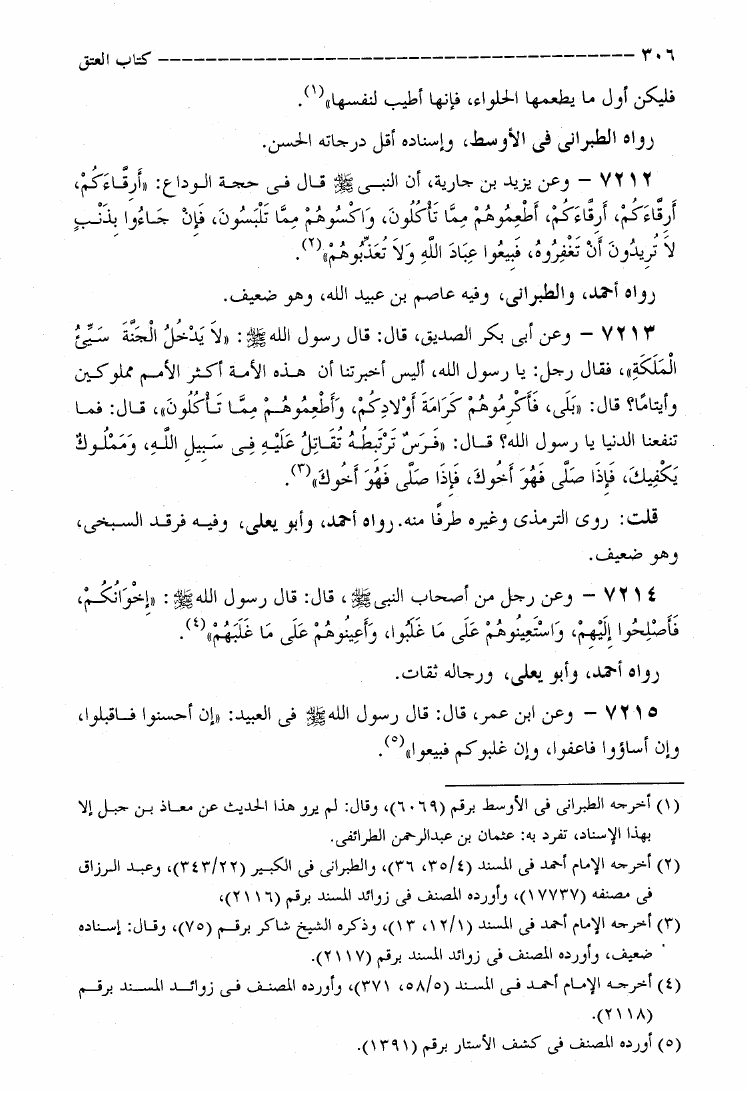 ٣٠٦ ---------------------------------------- كتاب العتق
فليكن أول ما يطعمها الحلواء، فإنها أطيب لنفسها»(١).
رواه الطبرانى فى الأوسط، وإسناده أقل درجاته الحسن.
٧٢١٢ – وعن يزيد بن جارية، أن النبى ﷺ قال فى حجة الوداع: «أَرِقَّاءَكُمْ،
أَرِقَّاءَكُمْ، أَرِقَّاءَكُمْ، أَطْعِمُوهُمْ مِمَّا تَأْكُلُونَ، وَاكْسُوهُمْ مِمَّا تَلْبَسُونَ، فَإِنْ جَاءُوا بِذَنْبٍ
لاَ تُرِيدُونَ أَنْ تَغْفِرُوهُ، فَبِيعُوا عِبَادَ اللَّهِ وَلاَ تُعَذِّبُوهُمْ»(٢).
رواه أحمد، والطبرانى، وفيه عاصم بن عبيد الله، وهو ضعيف.
٧٢١٣ – وعن أبى بكر الصديق، قال: قال رسول الله ﷺ: «لاَ يَدْخُلُ الْجَنَّةَ سَيِّئُ
الْمَلَكَةِ»، فقال رجل: يا رسول الله، أليس أخبرتنا أن هذه الأمة أكثر الأمم مملوكين
وأيتامًا؟ قال: «بَلَى، فَأَكْرِمُوهُمْ كَرَامَةَ أَوْلاَدِكُمْ، وَأَطْعِمُوهُمْ مِمَّا تَأْكُلُونَ»، قال: فما
تنفعنا الدنيا يا رسول الله؟ قال: «فَرَسٌ تَرْتَبِطُهُ تُقَاتِلُ عَلَيْهِ فِى سَبِيلِ اللَّهِ، وَمَمْلُوكٌ
يَكْفِيكَ، فَإِذَا صَلَّى فَهُوَ أَخُوكَ، فَإِذَا صَلَّى فَهُوَ أَخُوكَ»(٣).
قلت: روى الترمذى وغيره طرفًا منه. رواه أحمد، وأبو يعلى، وفيه فرقد السبخى،
وهو ضعيف.
٧٢١٤ – وعن رجل من أصحاب النبى ﷺ، قال: قال رسول الله ﷺ: «إِخْوَانُكُمْ،
فَأَصْلِحُوا إِلَيْهِمْ، وَاسْتَعِينُوهُمْ عَلَى مَا غَلَبُوا، وَأَعِينُوهُمْ عَلَى مَا غَلَبَهُمْ»(٤).
رواه أحمد، وأبو يعلى، ورجاله ثقات.
٧٢١٥ – وعن ابن عمر، قال: قال رسول الله ﷺ فى العبيد: «إن أحسنوا فاقبلوا،
وإن أساؤوا فاعفوا، وإن غلبوكم فبيعوا»(٥).
(١) أخرجه الطبرانى فى الأوسط برقم (٦٠٦٩)، وقال: لم يرو هذا الحديث عن معاذ بن جبل إلا
بهذا الإسناد، تفرد به: عثمان بن عبدالرحمن الطرائفى.
(٢) أخرجه الإمام أحمد فى المسند (٣٥/٤، ٣٦)، والطبرانى فى الكبير (٣٤٣/٢٢)، وعبد الرزاق
فى مصنفه (١٧٧٣٧)، وأورده المصنف فى زوائد المسند برقم (٢١١٦)،
(٣) أخرجه الإمام أحمد فى المسند (١٢/١، ١٣)، وذكره الشيخ شاكر برقم (٧٥)، وقال: إسناده
ضعيف، وأورده المصنف فى زوائد المسند برقم (٢١١٧).
(٤) أخرجه الإمام أحمد فى المسند (٥٨/٥، ٣٧١)، وأورده المصنف فى زوائد المسند برقم
(٢١١٨).
(٥) أورده المصنف فى كشف الأستار برقم (١٣٩١).